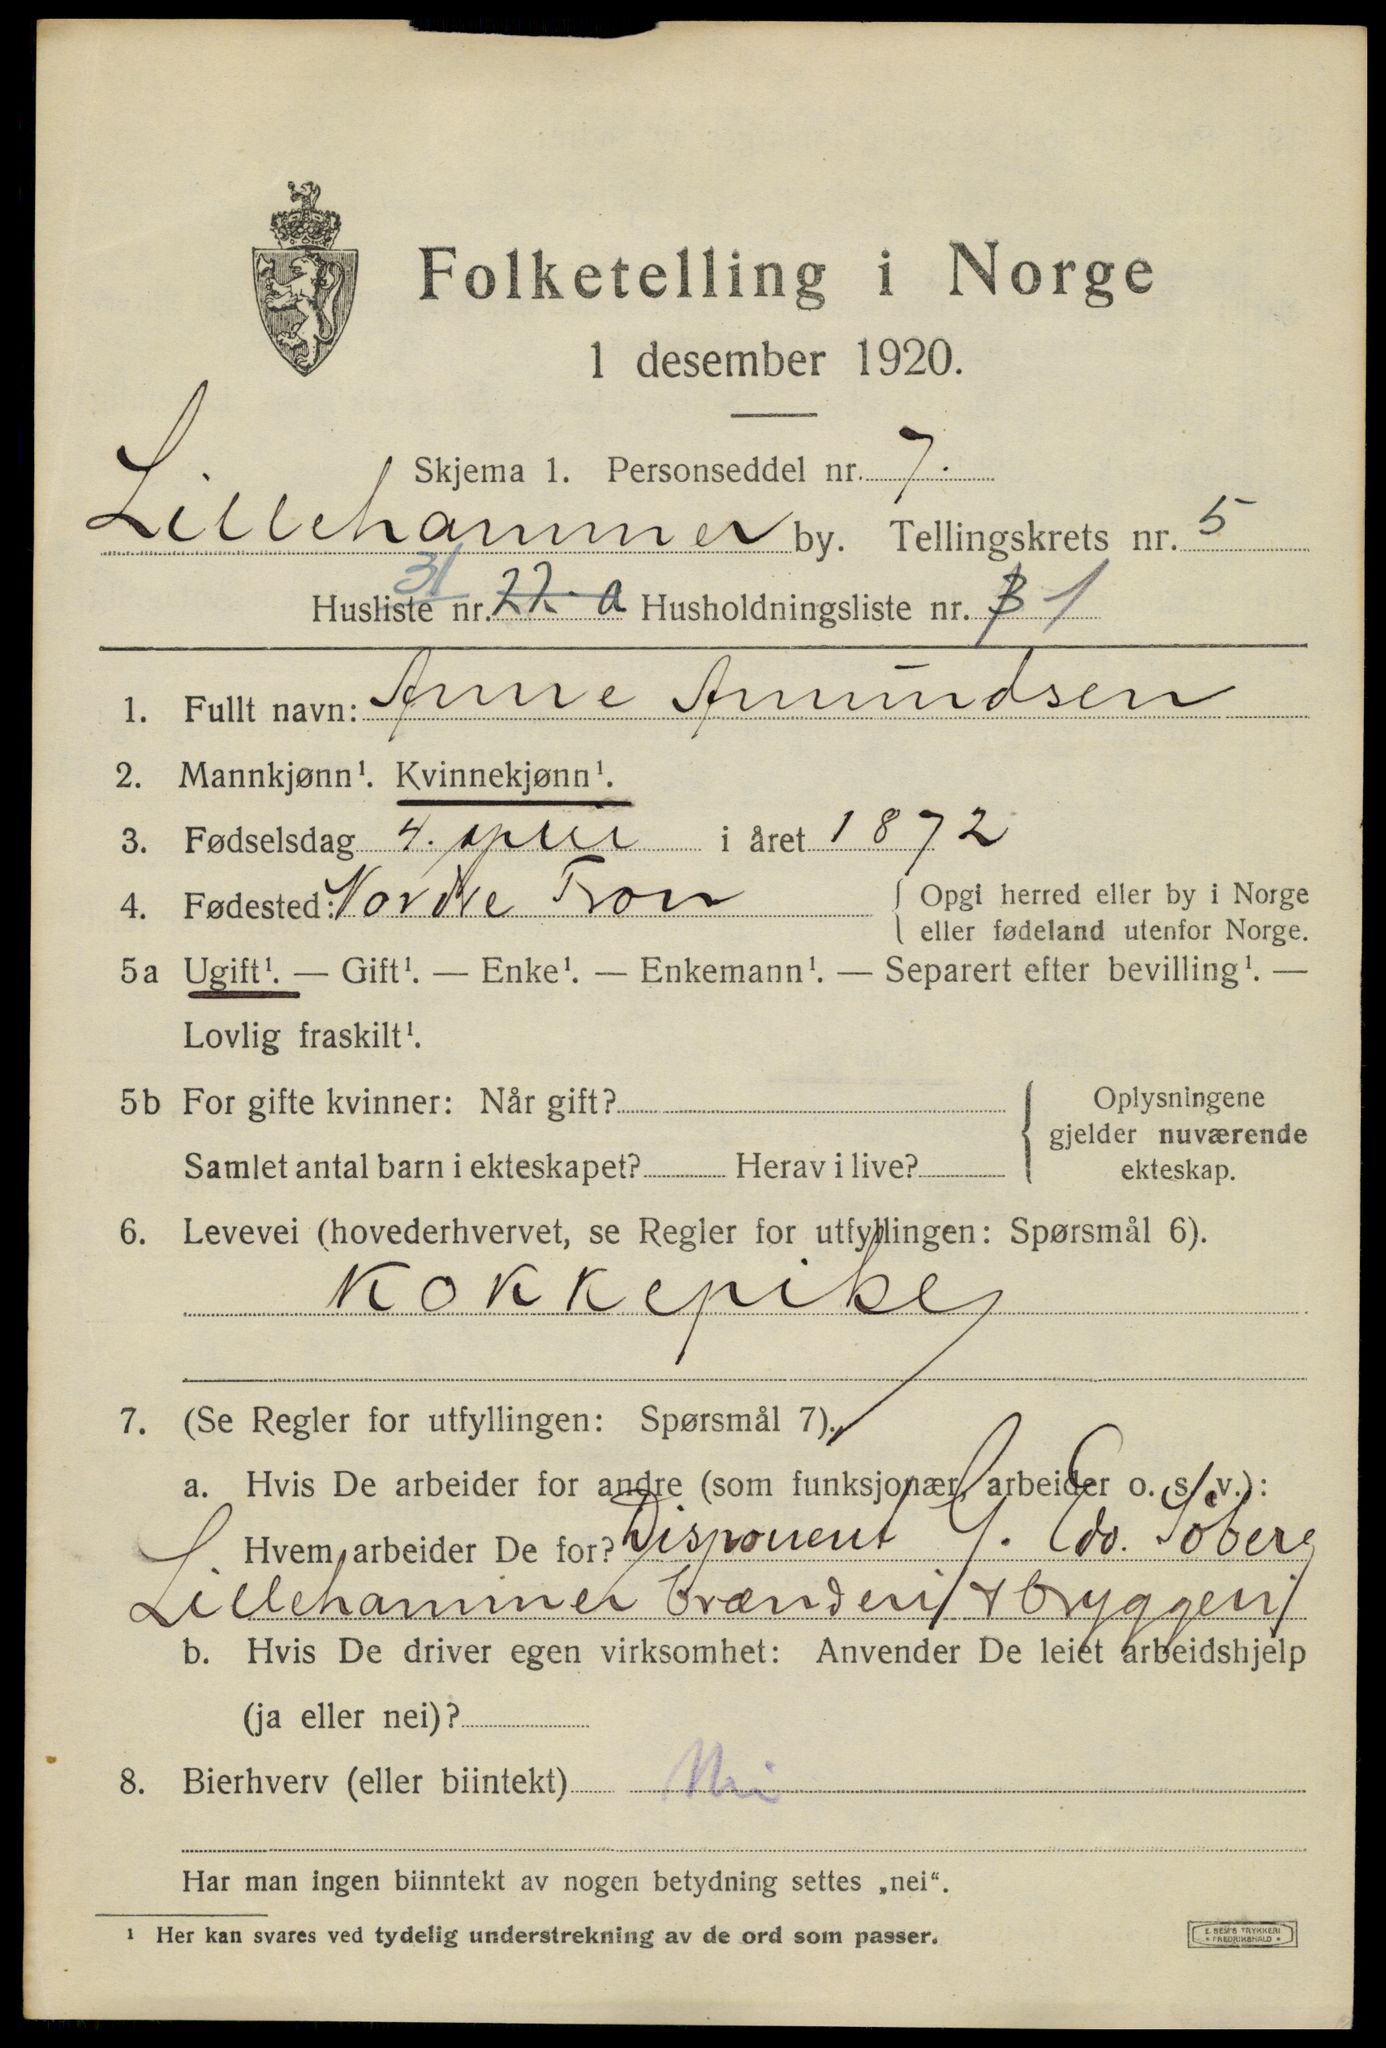 Folketelling i Norge
1 desember 1920.
Skjema 1. Personseddel nr. 7.
Lillehammer by. Tellingskrets nr. 5
31
Husliste nr. 22. a Husholdningsliste nr. 3 1
1. Fullt navn: Anne Amundsen
2. Mannkjønn¹. Kvinnekjønn¹.
3. Fødselsdag 4. april i året 1872
4. Fødested: Nordre Fron { Opgi herred eller by i Norge
eller fødeland utenfor Norge.
5a Ugift¹. — Gift¹. — Enke¹. — Enkemann¹. — Separert efter bevilling¹. —
Lovlig fraskilt¹.
5b For gifte kvinner: Når gift? { Oplysningene
gjelder nuværende
Samlet antal barn i ekteskapet? Herav i live? ekteskap.
6. Levevei (hovederhvervet, se Regler for utfyllingen: Spørsmål 6).
Kokkepike
7. (Se Regler for utfyllingen: Spørsmål 7).
a. Hvis De arbeider for andre (som funksjonær, arbeider o. s. v.):
Hvem arbeider De for? Disponent G. Edv. Söberg
Lillehammer brænderi & bryggeri
b. Hvis De driver egen virksomhet: Anvender De leiet arbeidshjelp
(ja eller nei)?
8. Bierhverv (eller biintekt) Nei
Har man ingen biinntekt av nogen betydning settes „nei“.
¹ Her kan svares ved tydelig understrekning av de ord som passer.
E. SEM'S TRYKKERI
• FREDRIKSHALD •